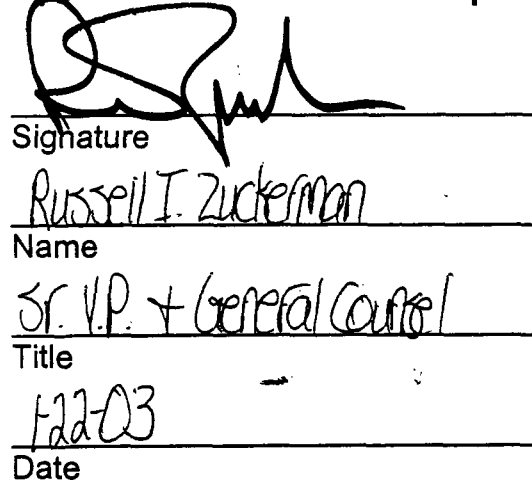 Signature
Russell I. Zuckerman
Name
Sr. V.P. + General Counsel
Title
1-22-03
Date